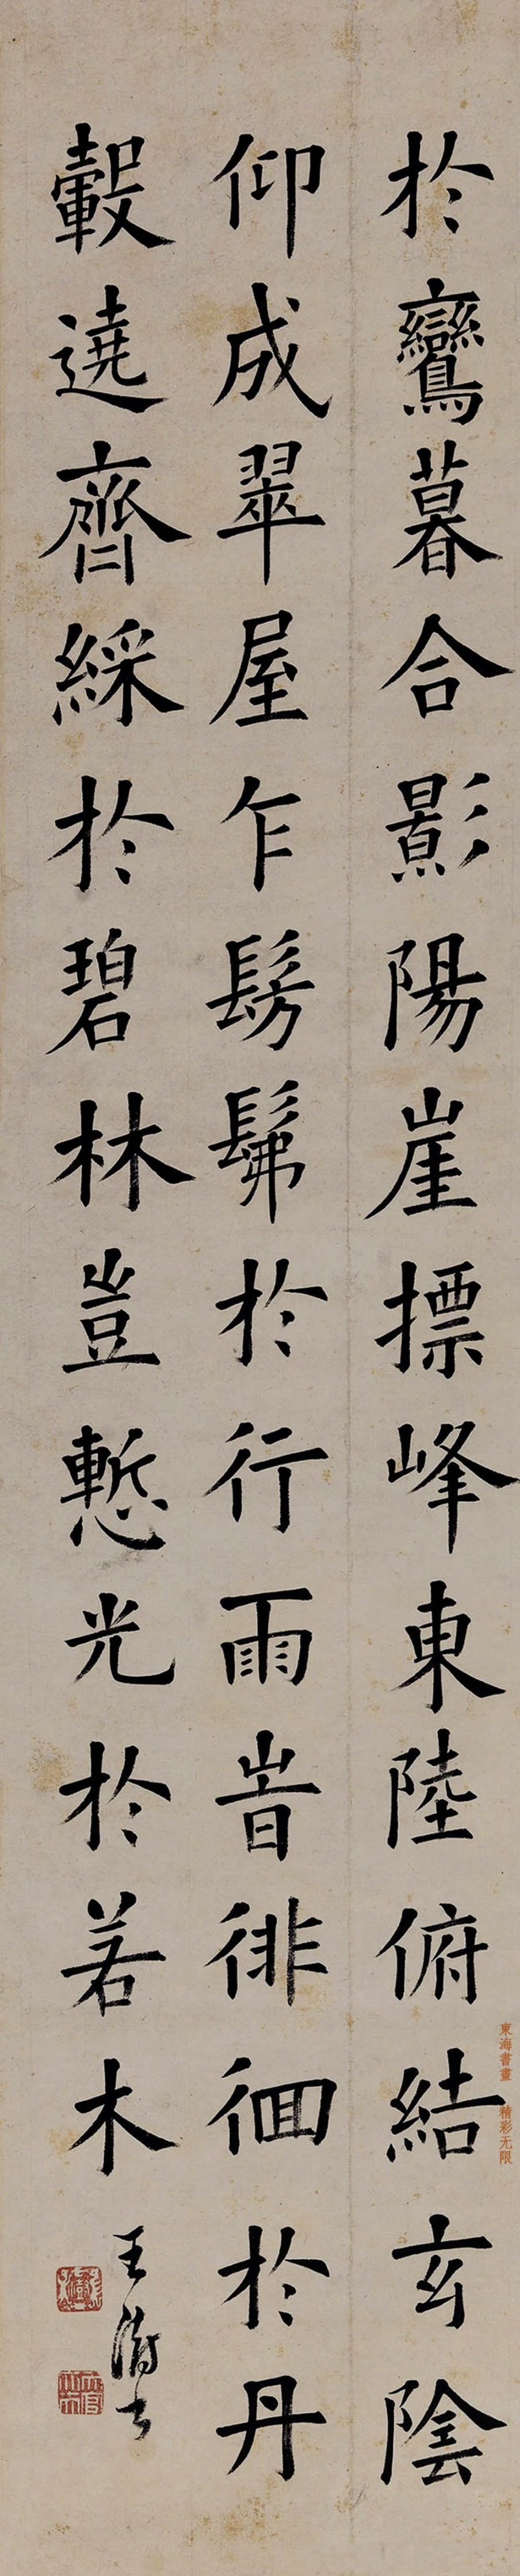 於鸞暮合影陽崖摽峰東陸俯結玄陰
仰成翠屋乍髣髴於行雨峕徘徊於丹
轂遶齊綵於碧林豈慙光於若木
王澍
東海書畫 精彩无限